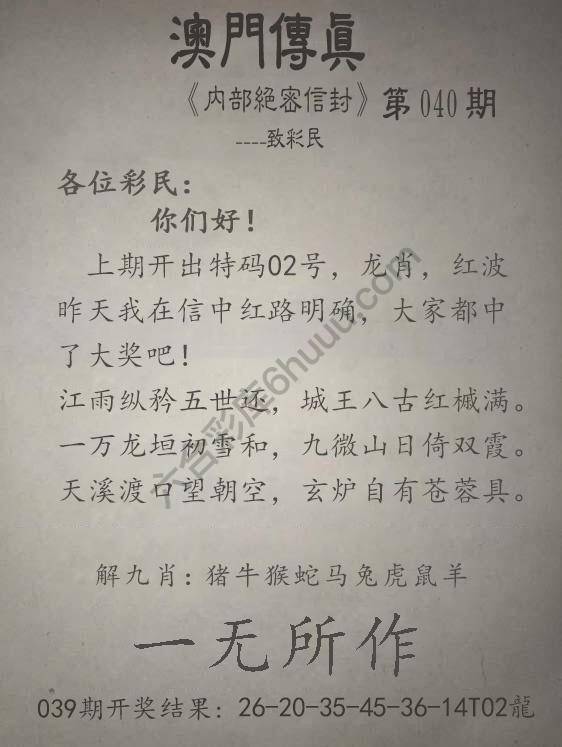 澳門傳眞
《内部絕密信封》第040期
----致彩民
各位彩民：
你们好！
上期开出特码02号，龙肖，红波
昨天我在信中红路明确，大家都中
了大奖吧！
江雨纵矜五世还，城王八古红槭满。
一万龙垣初雪和，九微山日倚双霞。
天溪渡口望朝空，玄炉自有苍蓉具。
六合彩库6huuu.com
解九肖：猪牛猴蛇马兔虎鼠羊
一无所作
039期开奖结果：26-20-35-45-36-14T02龍